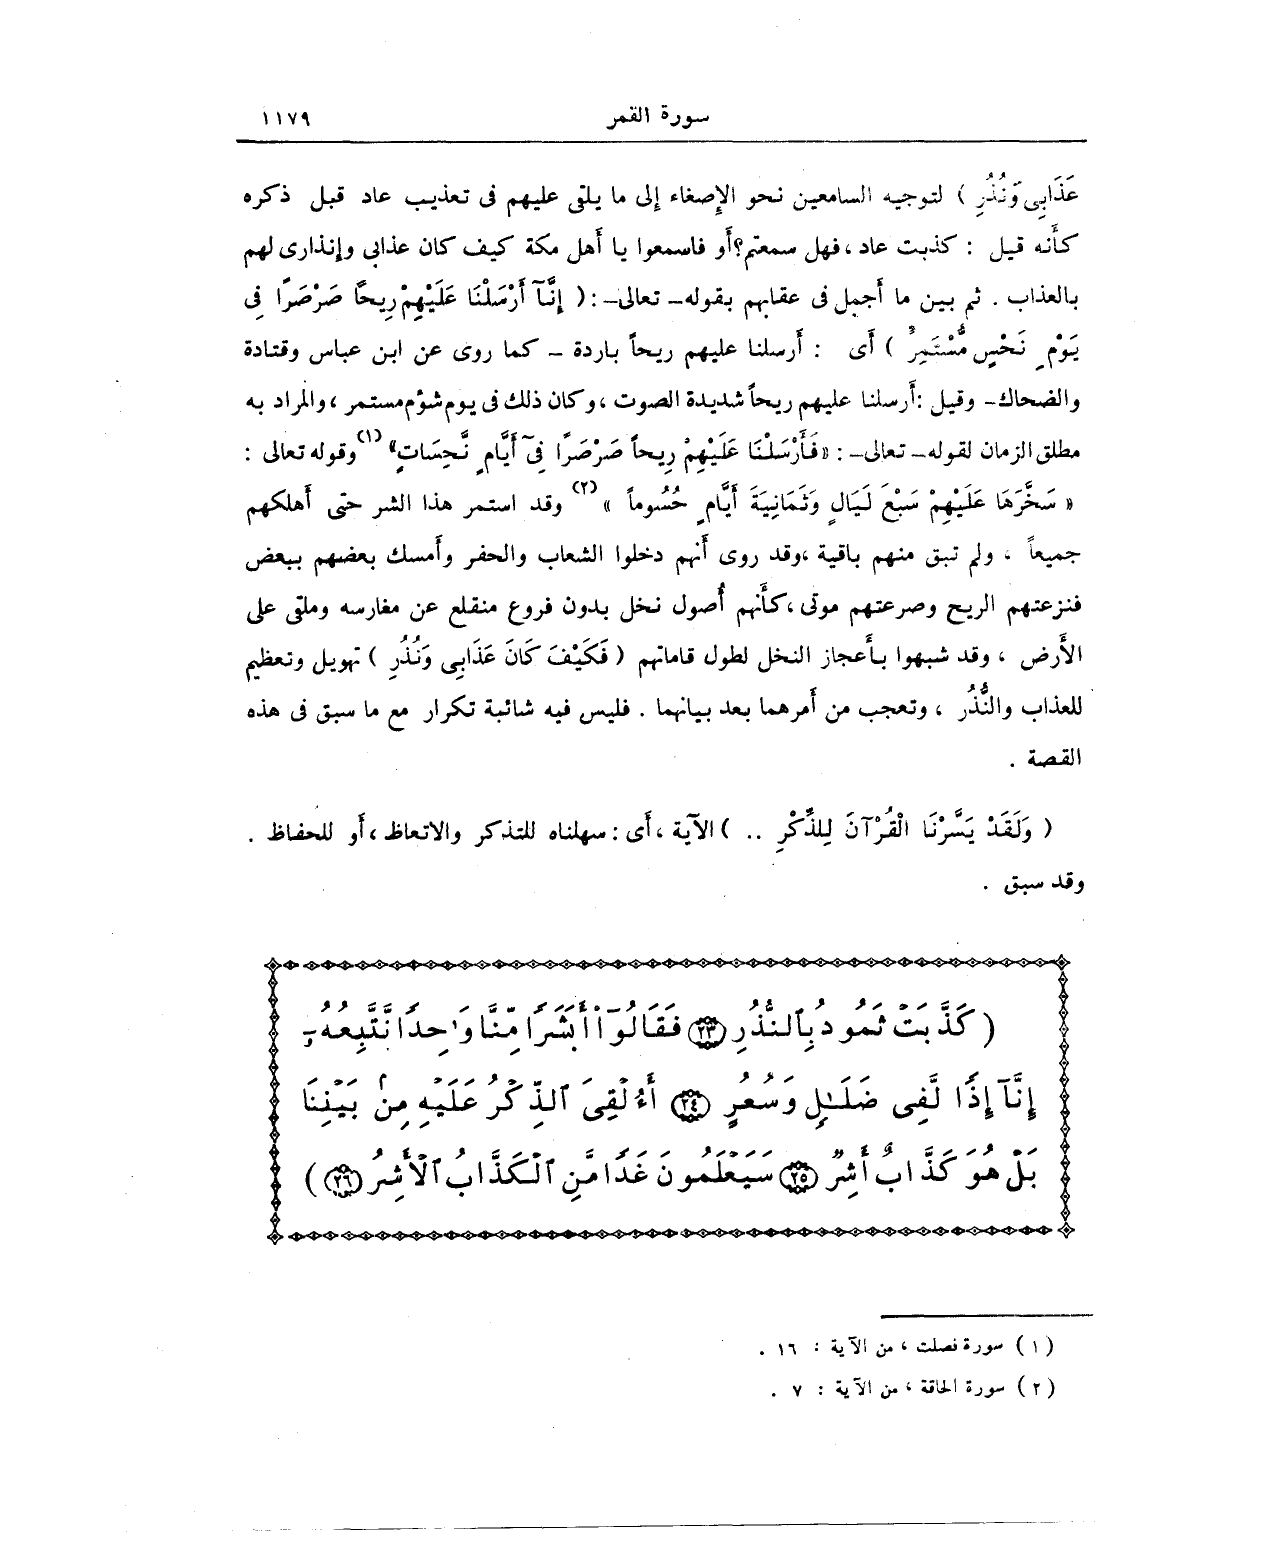 سورة القمر ١١٧٩
عَذَابِى وَنُذُرِ ) لتوجيه السامعين نحو الإصغاء إلى ما يلقى عليهم فى تعذيب عاد قبل ذكره
كأنه قيل : كذبت عاد ، فهل سمعتم؟ أو فاسمعوا يا أهل مكة كيف كان عذابى وإنذارى لهم
بالعذاب . ثم بين ما أجمل فى عقابهم بقوله - تعالى - : ( إِنَّآ أَرْسَلْنَا عَلَيْهِمْ رِيحًا صَرْصَرًا فِى
يَوْمِ نَحْسٍ مُّسْتَمِرٍّ ) أى : أرسلنا عليهم ريحاً باردة - كما روى عن ابن عباس وقتادة
والضحاك - وقيل : أرسلنا عليهم ريحاً شديدة الصوت ، وكان ذلك فى يوم شؤم مستمر ، والمراد به
مطلق الزمان لقوله - تعالى - : «فَأَرْسَلْنَا عَلَيْهِمْ رِيحاً صَرْصَرًا فِىٓ أَيَّامٍ نَّحِسَاتٍ» (١) وقوله تعالى :
« سَخَّرَهَا عَلَيْهِمْ سَبْعَ لَيَالٍ وَثَمَانِيَةَ أَيَّامٍ حُسُوماً » (٢) وقد استمر هذا الشر حتى أهلكهم
جميعاً ، ولم تبق منهم باقية ، وقد روى أنهم دخلوا الشعاب والحفر وأمسك بعضهم ببعض
فنزعتهم الريح وصرعتهم موتى ، كأنهم أُصول نخل بدون فروع منقلع عن مغارسه وملقى على
الأرض ، وقد شبهوا بأعجاز النخل لطول قاماتهم ( فَكَيْفَ كَانَ عَذَابِى وَنُذُرِ ) تهويل وتعظيم
للعذاب والنُّذُر ، وتعجب من أمرهما بعد بيانهما . فليس فيه شائبة تكرار مع ما سبق فى هذه
القصة .
( وَلَقَدْ يَسَّرْنَا الْقُرْآنَ لِلذِّكْرِ .. ) الآية ، أى : سهلناه للتذكر والاتعاظ ، أو للحفاظ .
وقد سبق .
( كَذَّبَتْ ثَمُودُ بِٱلنُّذُرِ ٢٣ فَقَالُوٓا۟ أَبَشَرًا مِّنَّا وَٰحِدًا نَّتَّبِعُهُۥٓ
إِنَّآ إِذًا لَّفِى ضَلَٰلٍ وَسُعُرٍ ٢٤ أَءُلْقِىَ ٱلذِّكْرُ عَلَيْهِ مِنۢ بَيْنِنَا
بَلْ هُوَ كَذَّابٌ أَشِرٌ ٢٥ سَيَعْلَمُونَ غَدًا مَّنِ ٱلْكَذَّابُ ٱلْأَشِرُ ٢٦ )
(١) سورة فصلت ، من الآية : ١٦ .
(٢) سورة الحاقة ، من الآية : ٧ .